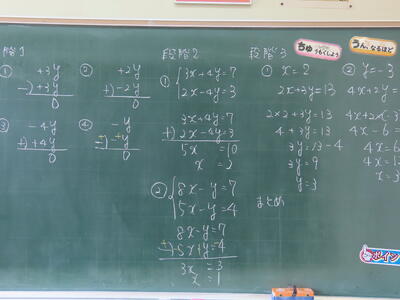 段階1
① +3y
-) +3y
0
② +2y
+) -2y
0
③ -4y
+) +4y
0
④ -y
0
段階2
① 3x+4y=7
2x-4y=3
3x+4y=7
+) 2x-4y=3
5x =10
x =2
② 8x-y=7
5x-y=4
8x-y=7
3x =3
x =1
段階3
ちゅうもくしよう
① x=2
2x+3y=13
2×2+3y=13
4+3y=13
3y=13-4
3y=9
y=3
まとめ
うん、なるほど
② y=-3
4x+2y=
4x+2×(-3
4x-6=
4x=6
4x=1
x=3
ポイン